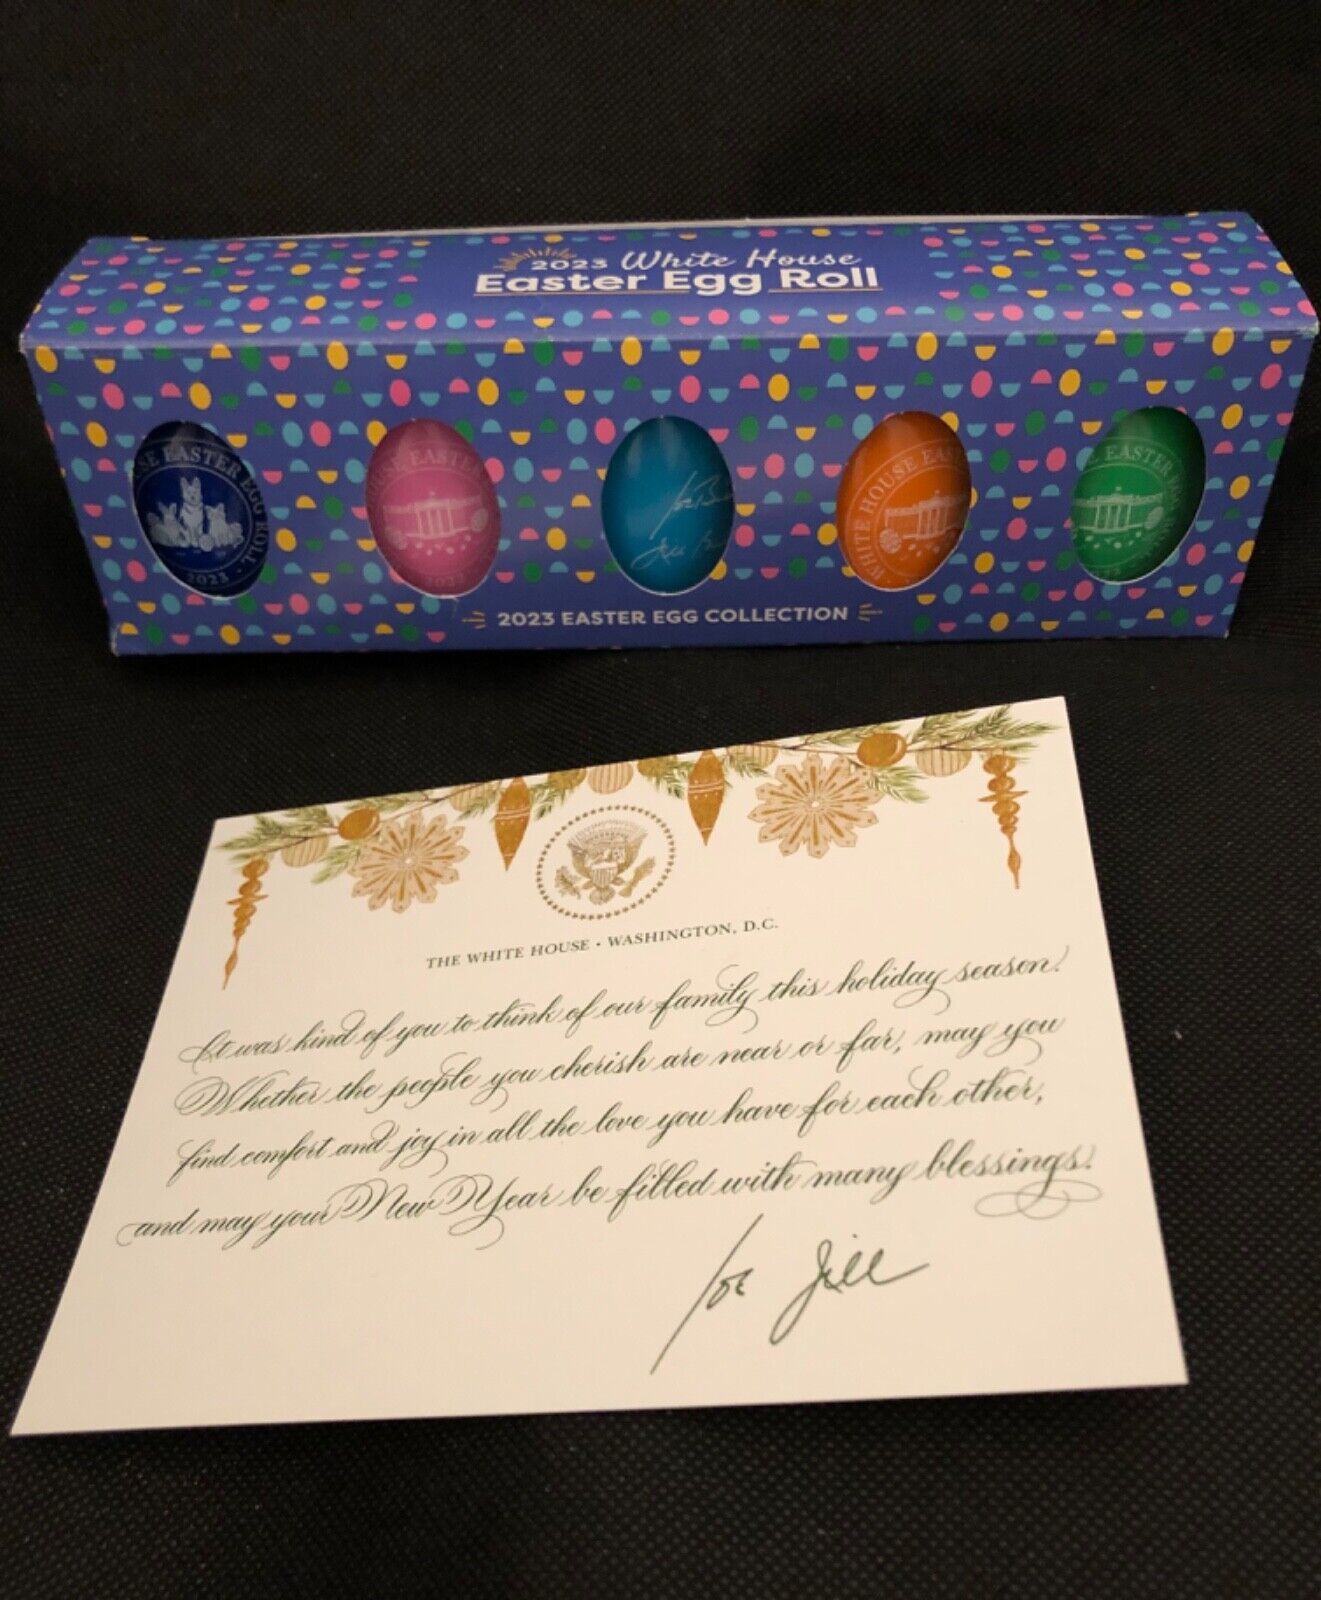 2023 White House
Easter Egg Roll
SE EASTER EGG ROLL ·
2023
USE EASTE
2023
Joe Bi
Jill Bi
WHITE HOUSE EAS
E EASTER
2023 EASTER EGG COLLECTION
THE WHITE HOUSE · WASHINGTON, D.C.
It was kind of you to think of our family this holiday season.
Whether the people you cherish are near or far, may you
find comfort and joy in all the love you have for each other,
and may your New Year be filled with many blessings.
Joe Jill